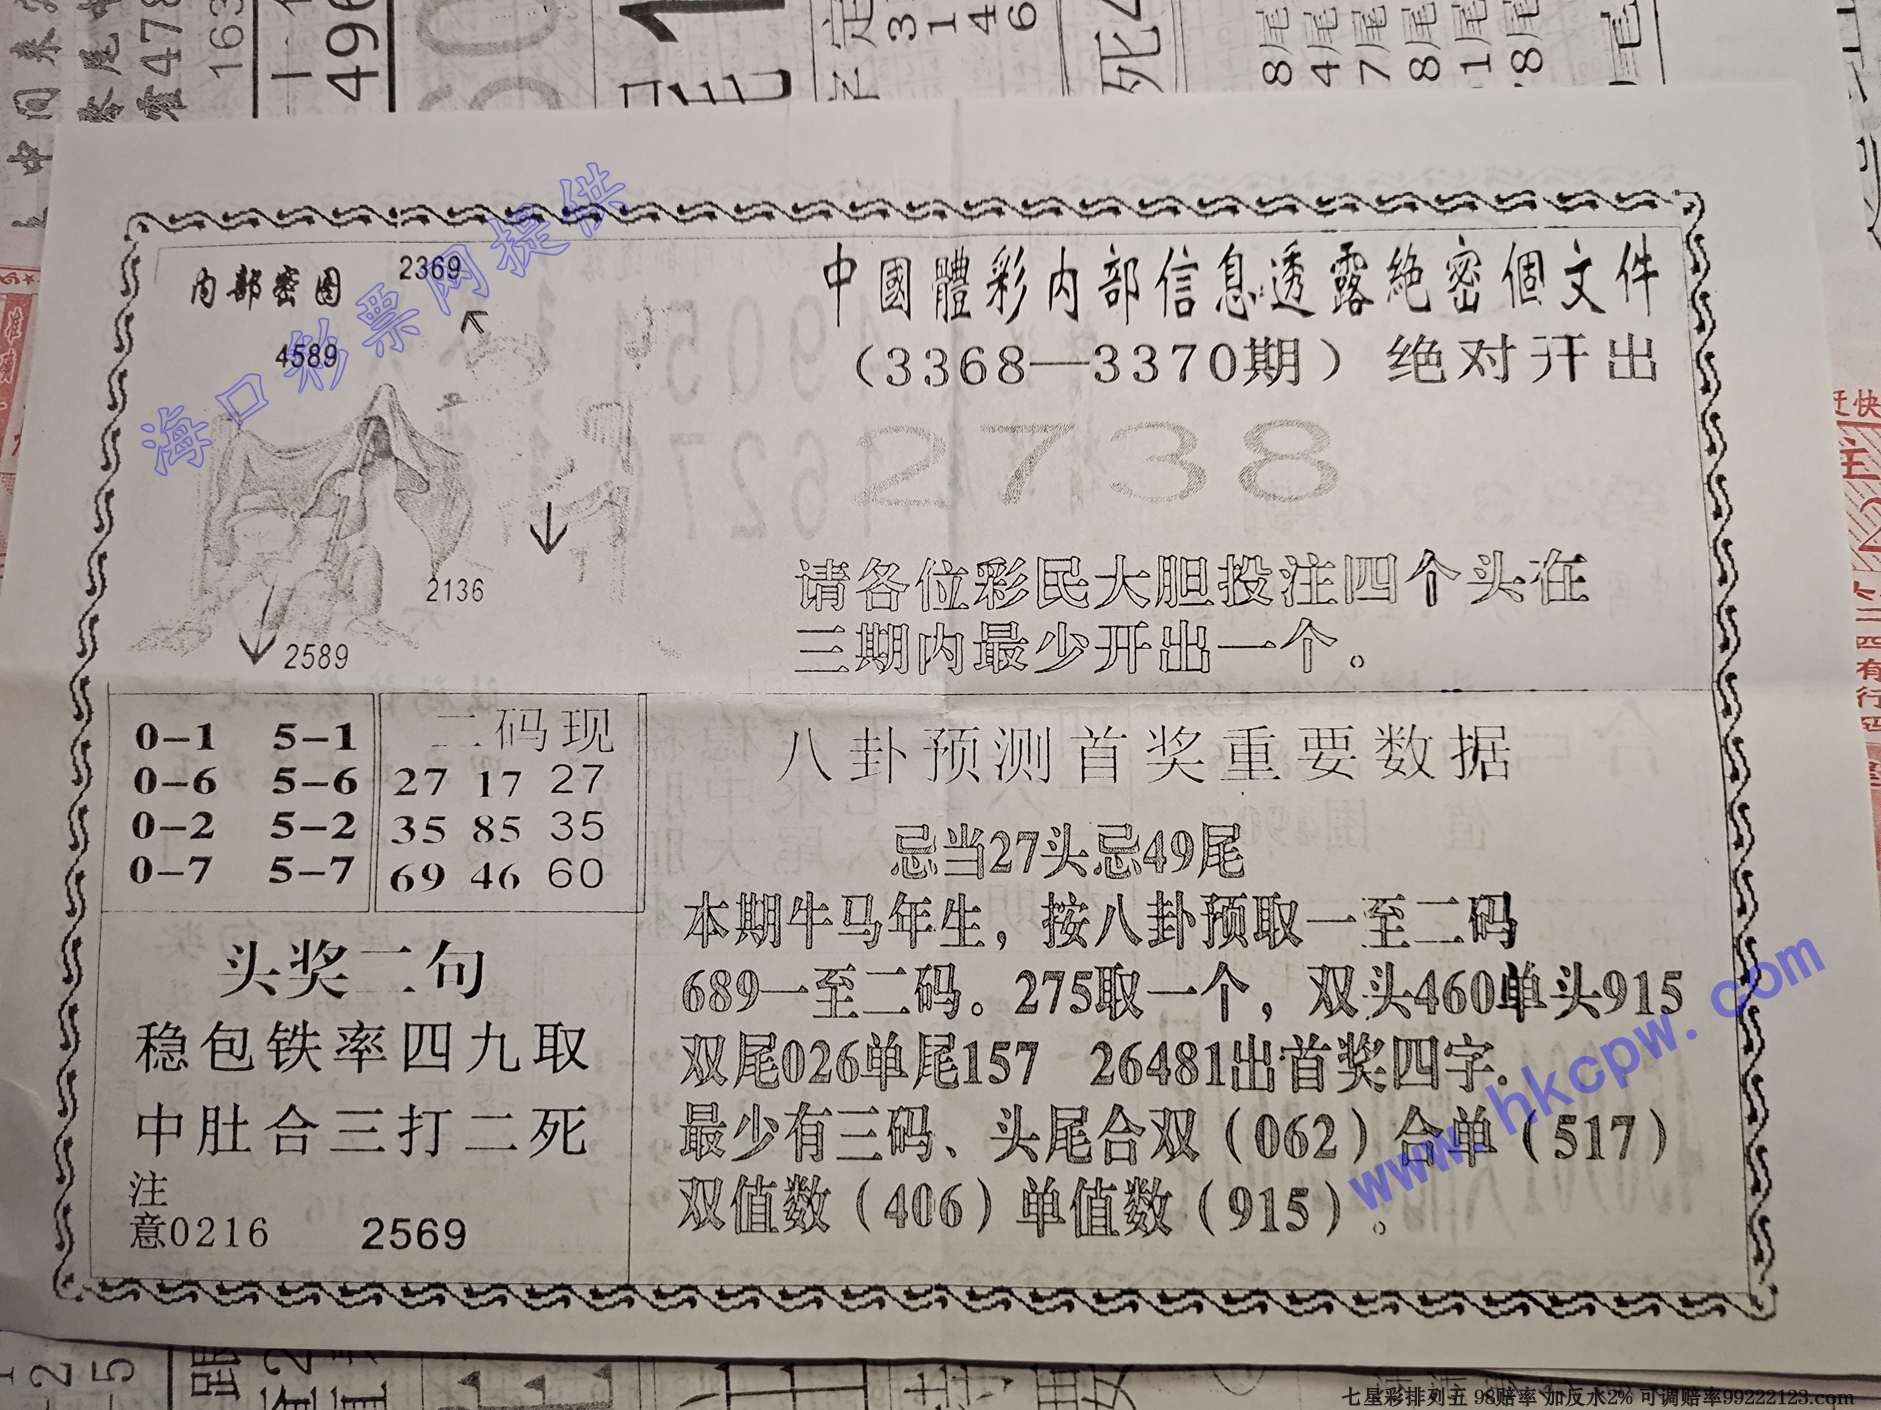 内部密图
2369
4589
2136
2589
海口彩票网提供
中國體彩内部信息透露絶密個文件
（3368—3370期）绝对开出
2738
请各位彩民大胆投注四个头在
三期内最少开出一个。
0-1 5-1
0-6 5-6
0-2 5-2
0-7 5-7
二码现
27 17 27
35 85 35
69 46 60
头奖二句
稳包铁率四九取
中肚合三打二死
注
意0216 2569
八卦预测首奖重要数据
忌当27头忌49尾
本期牛马年生，按八卦预取一至二码
689一至二码。275取一个，双头460单头915
双尾026单尾157 26481出首奖四字.
最少有三码、头尾合双（062）合单（517）
双值数（406）单值数（915）。
www.hkcpw.com
七星彩排列五 98赔率 加反水2% 可调赔率99222123.com